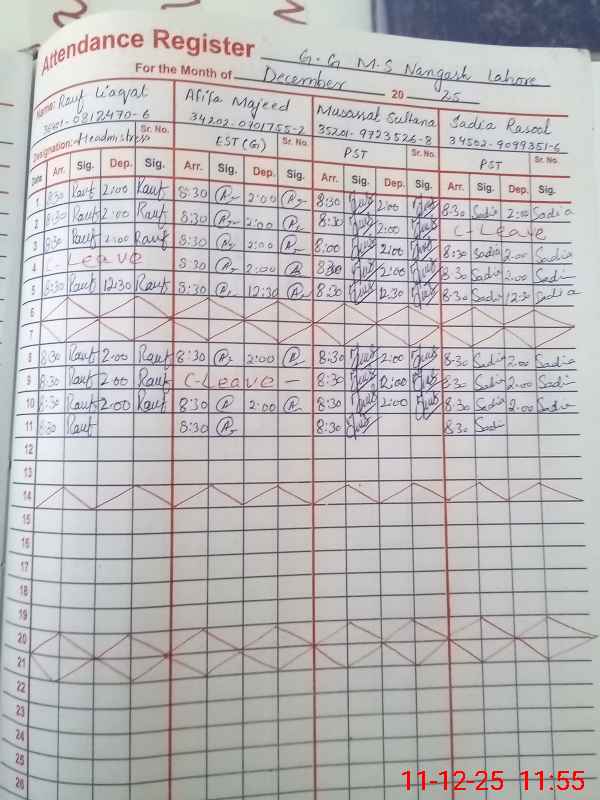 Attendance Register G.G M.S Nangash Lahore
For the Month of December 20 25
Name: Rauf Liaqat Afifa Majeed Musarrat Sultana Sadia Rasool
34202-0401755-2 35201-9723526-8 34502-9099351-6
Designation: Headmistress Sr. No. EST (G) Sr. No. PST Sr. No. PST Sr. No.
Date Arr. Sig. Dep. Sig. Arr. Sig. Dep. Sig. Arr. Sig. Dep. Sig. Arr. Sig. Dep. Sig.
1 8:30 Rauf 2:00 Rauf 8:30 2:00 8:30 2:00 8:30 Sadia 2:00 Sadia
2 8:30 Rauf 2:00 Rauf 8:30 2:00 8:30 2:00 C-Leave
3 8:30 Rauf 2:00 Rauf 8:30 2:00 8:00 2:00 8:30 Sadia 2:00 Sadia
4 C-Leave 8:30 2:00 8:30 2:00 8:30 Sadia 2:00 Sadia
5 8:30 Rauf 12:30 Rauf 8:30 12:30 8:30 12:30 8:30 Sadia 12:30 Sadia
6
7
8 8:30 Rauf 2:00 Rauf 8:30 2:00 8:30 2:00 8:30 Sadia 2:00 Sadia
9 8:30 Rauf 2:00 Rauf C-Leave — 8:30 2:00 8:30 Sadia 2:00 Sadia
10 8:30 Rauf 2:00 Rauf 8:30 2:00 8:30 2:00 8:30 Sadia 2:00 Sadia
11 8:30 Rauf 8:30 8:30 8:30 Sadia
12
13
14
15
16
17
18
19
20
21
22
23
24
25
26
11-12-25 11:55